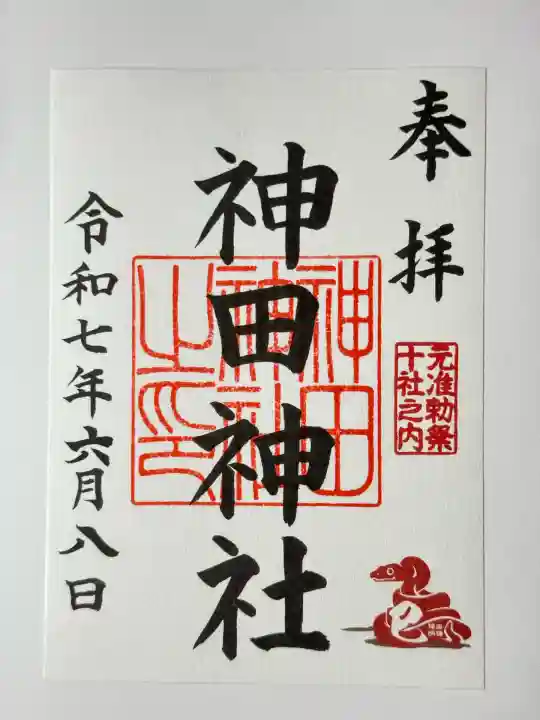 奉拝
元准勅祭
十社之内
神田神社
神田
神社
之印
令和七年六月八日